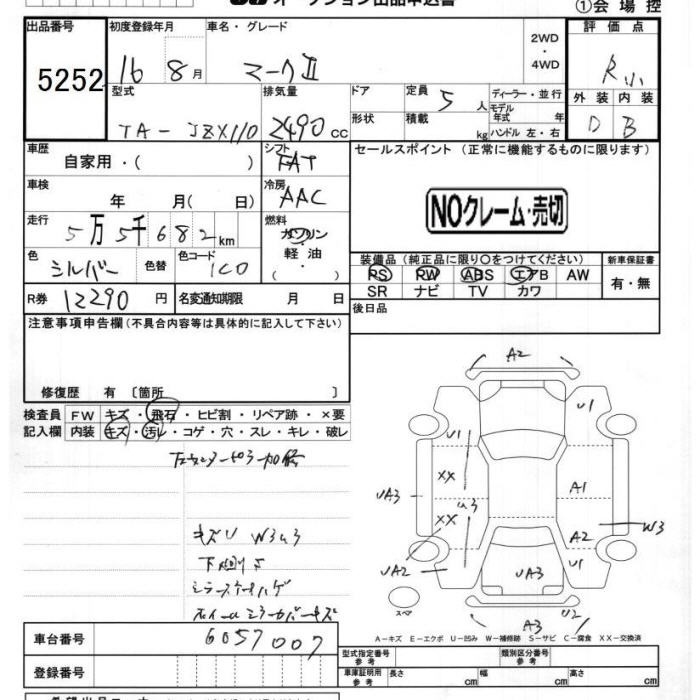 オークション出品申込書
①会場控
出品番号 初度登録年月 車名・グレード 2WD・4WD 評価点
5252 16 8月 マークⅡ R小
型式 排気量 ドア 定員 5人 ディーラー・並行 外装 内装
TA-JZX110 2490cc 形状 積載 kg モデル年式 年 ハンドル 左・右 D B
車歴 シフト セールスポイント (正常に機能するものに限ります)
自家用・( ) FAT
車検 冷房
年 月( 日) AAC
NOクレーム・売切
走行 燃料
5万5千682km ガソリン・軽油・( )
色 色替 色コード 装備品(純正品に限り○をつけてください) 新車保証書
シルバー 1C0 PS PW ABS エアB AW 有・無
SR ナビ TV カワ
R券 12290円 名変通知期限 月 日 後日品
注意事項申告欄(不具合内容等は具体的に記入して下さい)
修復歴 有 〔箇所 〕
検査員 FW キズ・飛石・ヒビ割・リペア跡・×要
記入欄 内装 キズ・汚レ・コゲ・穴・スレ・キレ・破レ
左センターピラー加修
キズU W3U3
下廻りサ
ミラーステーハゲ
ホイールミラーカバーキズ
A2
U1 U1
XX
UA3 U3 A1
XX W3
A2
UA2 UA3 U1
スペア A3 U2
A-キズ E-エクボ U-凹み W-補修跡 S-サビ C-腐食 XX-交換済
車台番号 6057007
型式指定番号 参考 類別区分番号 参考
登録番号 車庫証明用 参考 長さ cm 幅 cm 高さ cm